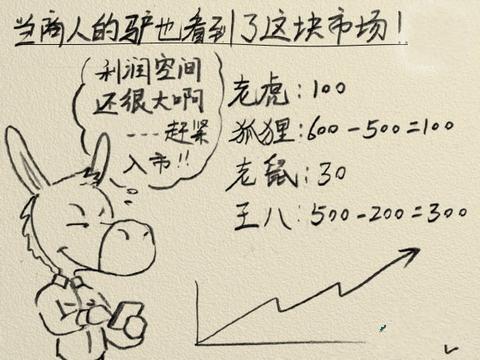 当商人的驴也看到了这块市场！
利润空间
还很大啊
---赶紧
入市!!
老虎:100
狐狸:600-500=100
老鼠:30
王八:500-200=300